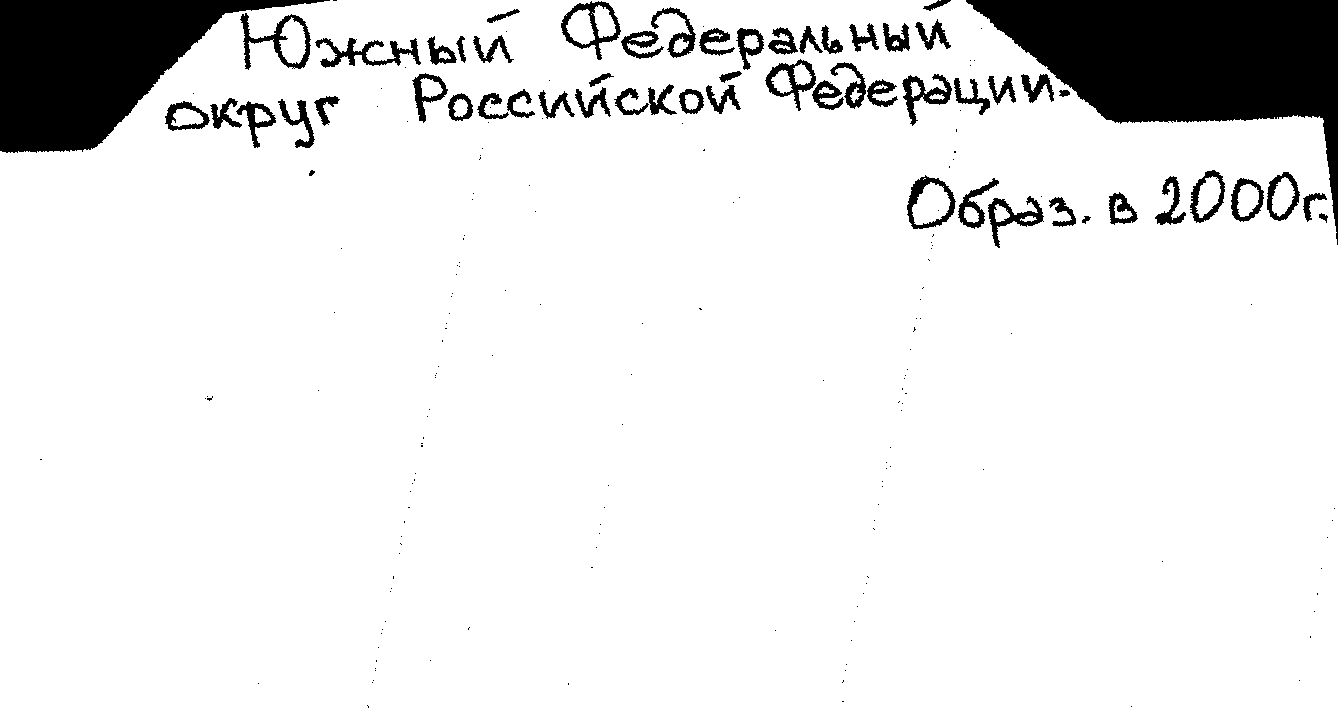 Южный Федеральный
округ Российской Федерации.
Образ. в 2000г.